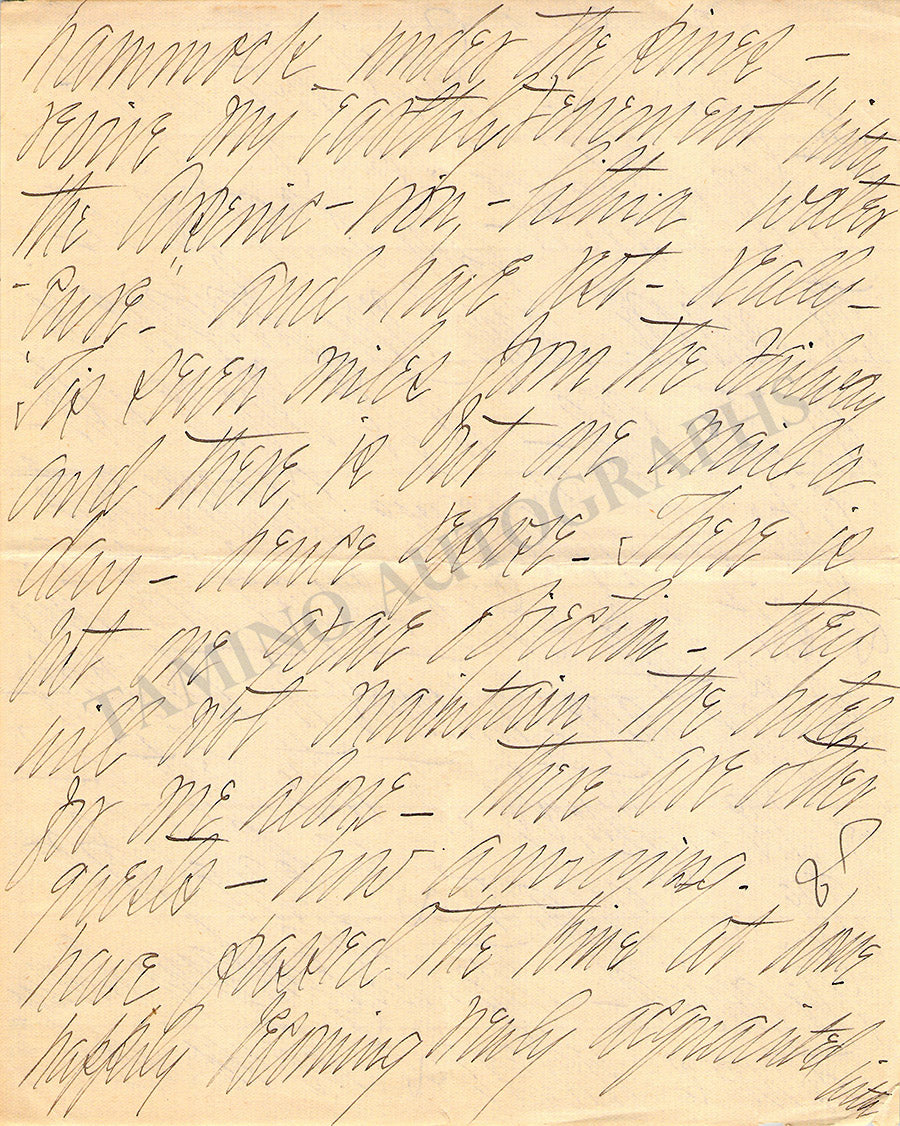 hammock under the pines —
revive my "earthly tenement" with
the Arsenic - iron, - lithia water
"cure -" and have rest - really -
'Tis seven miles from the railway
and there is but one mail a
day - hence repose - There is
but one grave objection - they
will not maintain the hotel
for me alone - there are other
guests - how annoying. I
have passed the time at home
happily becoming newly acquainted
with
TAMINO AUTOGRAPHS